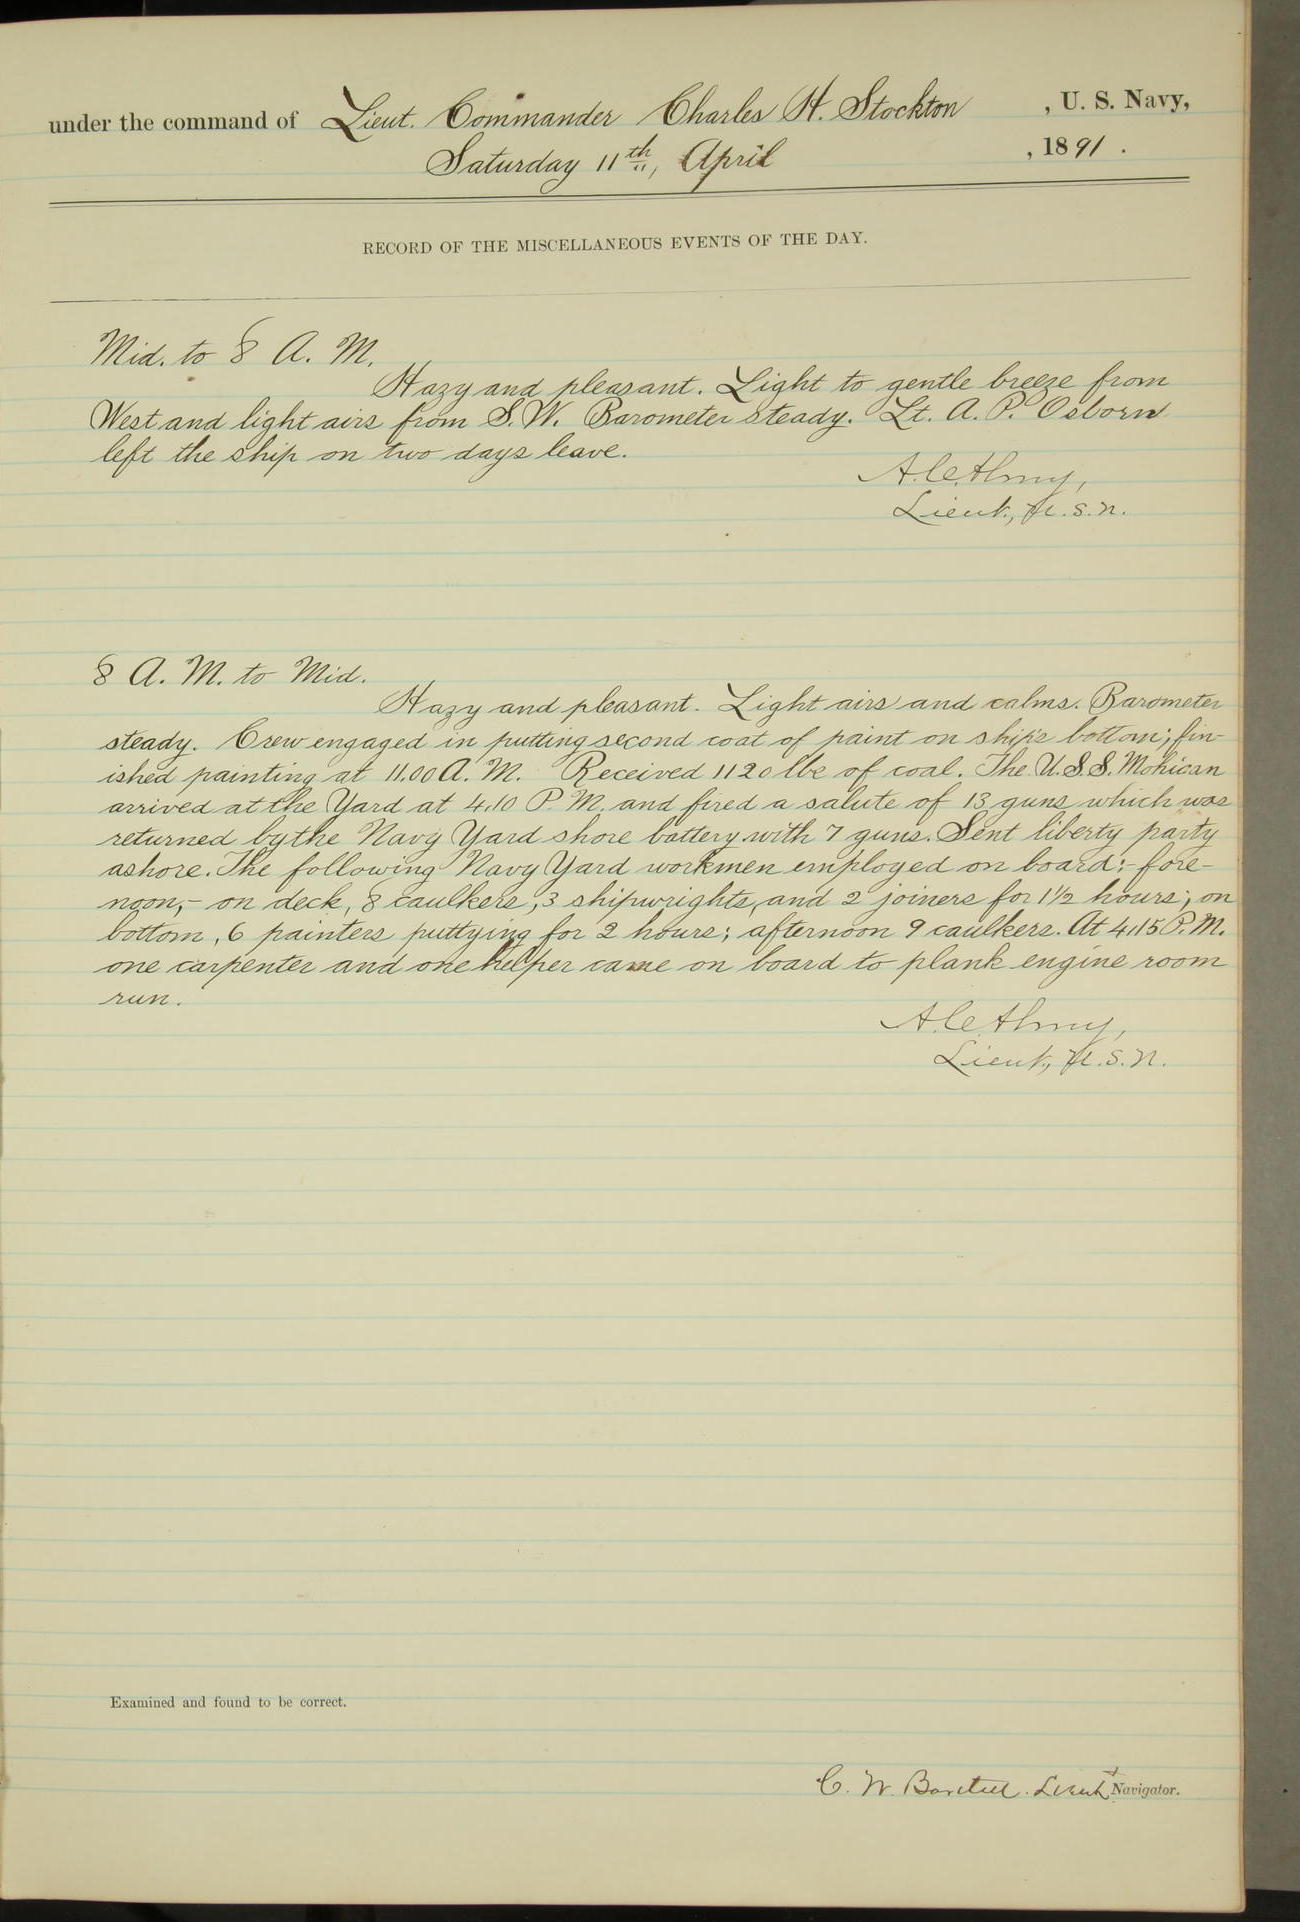 under the command of Lieut. Commander Charles H. Stockton, U. S. Navy,
Saturday 11th, April, 1891.
RECORD OF THE MISCELLANEOUS EVENTS OF THE DAY.
Mid. to 8 A. M.
Hazy and pleasant. Light to gentle breeze from
West and light airs from S.W. Barometer steady. Lt. A. P. Osborn
left the ship on two days leave.
A. C. Almy,
Lieut., U.S.N.
8 A. M. to Mid.
Hazy and pleasant. Light airs and calms. Barometer
steady. Crew engaged in putting second coat of paint on ship's bottom; fin-
ished painting at 11.00 A. M. Received 1120 lbs of coal. The U.S.S. Mohican
arrived at the Yard at 4.10 P. M. and fired a salute of 13 guns which was
returned by the Navy Yard shore battery with 7 guns. Sent liberty party
ashore. The following Navy Yard workmen employed on board:- fore-
noon,- on deck, 8 caulkers, 3 shipwrights, and 2 joiners for 1½ hours; on
bottom, 6 painters puttying for 2 hours; afternoon 9 caulkers. At 4.15 P. M.
one carpenter and one helper came on board to plank engine room
run.
A. C. Almy,
Lieut., U.S.N.
Examined and found to be correct.
C. W. Lieut Navigator.